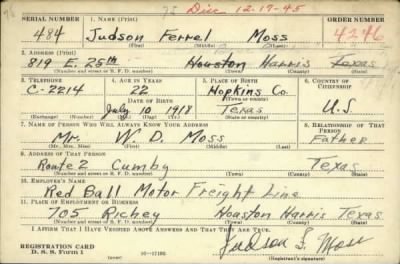 Disc. 12-17-45
SERIAL NUMBER 1. NAME (Print) ORDER NUMBER
484 Judson Ferrel Moss 4246
(First) (Middle) (Last)
2. ADDRESS (Print)
819 E. 25th Houston Harris Texas
(Number and street or R. F. D. number) (Town) (County) (State)
3. TELEPHONE 4. AGE IN YEARS 5. PLACE OF BIRTH 6. COUNTRY OF CITIZENSHIP
C-2214 22 Hopkins Co.
DATE OF BIRTH (Town or county)
July 10 1918 Texas U.S
(Exchange) (Number) (Mo.) (Day) (Yr.) (State or country)
7. NAME OF PERSON WHO WILL ALWAYS KNOW YOUR ADDRESS 8. RELATIONSHIP OF THAT PERSON
Mr. W. D. Moss Father
(Mr., Mrs., Miss) (First) (Middle) (Last)
9. ADDRESS OF THAT PERSON
Route 2 Cumby Texas
(Number and street or R. F. D. number) (Town) (County) (State)
10. EMPLOYER'S NAME
Red Ball Motor Freight Line
11. PLACE OF EMPLOYMENT OR BUSINESS
705 Richey Houston Harris Texas
(Number and street or R. F. D. number) (Town) (County) (State)
I AFFIRM THAT I HAVE VERIFIED ABOVE ANSWERS AND THAT THEY ARE TRUE.
REGISTRATION CARD
D. S. S. Form 1 16-17105 Judson F. Moss